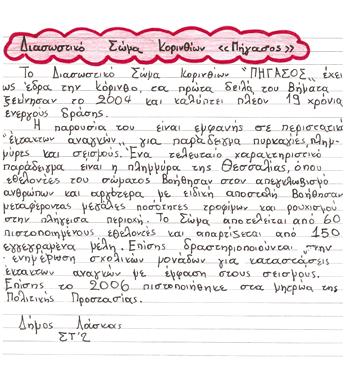 Διασωστικό Σώμα Κορινθίων «Πήγασος»
Το Διασωστικό Σώμα Κορινθίων "ΠΗΓΑΣΟΣ" έχει
ως έδρα την κόρινθο, τα πρώτα δειλά του βήματα
ξεκίνησαν το 2004 και καλύπτει πλέον 19 χρόνια
ενεργούς δράσης.
Η παρουσία του είναι εμφανής σε περιστατικά
"έκτακτων αναγκών" για παράδειγμα πυρκαγιές, πλημ-
μύρες και σεισμούς. Ένα τελευταίο χαρακτηριστικό
παράδειγμα είναι η πλημμύρα της Θεσσαλίας, όπου
εθελοντές του σώματος βοήθησαν στον απεγκλωβισμό
ανθρώπων και αργότερα με ειδική αποστολή βοήθησαν
μεταφέροντας μεγάλες ποσότητες τροφίμων και ρουχισμού
στην πληγείσα περιοχή. Το Σώμα αποτελείται από 60
πιστοποιημένους εθελοντές και απαρτίζεται από 150
εγγεγραμένα μέλη. Επίσης δραστηριοποιούνται στην
ενημέρωση σχολικών μονάδων για καταστάσεις
έκτακτων αναγκών με έμφαση στους σεισμούς.
Επίσης το 2006 πιστοποιήθηκε στα μητρώα της
Πολιτικής Προστασίας.
Δήμος Λάσκας
ΣΤ'2